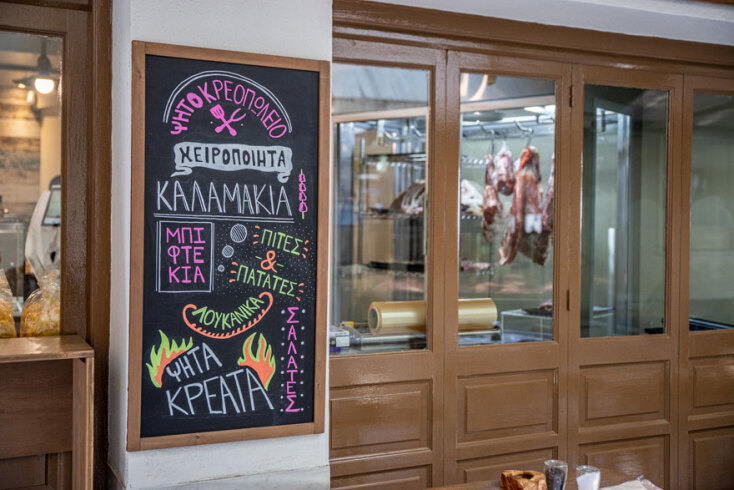 ΨΗΤΟΚΡΕΟΠΩΛΕΙΟ
ΧΕΙΡΟΠΟΙΗΤΑ
ΚΑΛΑΜΑΚΙΑ
ΜΠΙ
ΦΤΕ
ΚΙΑ
ΠΙΤΕΣ
&
ΠΑΤΑΤΕΣ
ΛΟΥΚΑΝΙΚΑ
ΣΑΛΑΤΕΣ
ΨΗΤΑ
ΚΡΕΑΤΑ